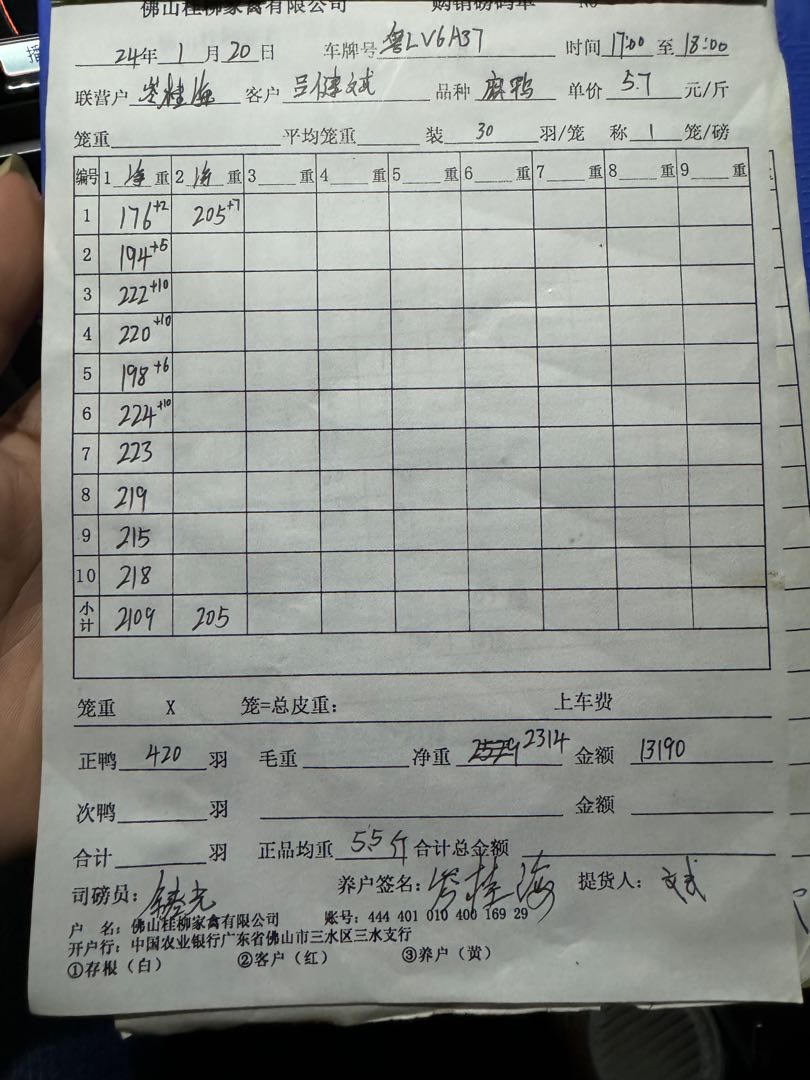 佛山桂柳家禽有限公司 购销磅码单 No
24年 1月20日 车牌号 粤LV6A37 时间17:00至18:00
联营户 岑桂海 客户 吕健斌 品种 麻鸭 单价 5.7 元/斤
笼重 平均笼重 装 30 羽/笼 称 1 笼/磅
编号 1 净 重 2 净 重 3 重 4 重 5 重 6 重 7 重 8 重 9 重
1 176+2 205+7
2 194+5
3 222+10
4 220+10
5 198+6
6 224+10
7 223
8 219
9 215
10 218
小计 2109 205
笼重 X 笼=总皮重: 上车费
正鸭 420 羽 毛重 净重 2314 金额 13190
次鸭 羽 金额
合计 羽 正品均重 5.5斤 合计总金额
司磅员: 养户签名: 岑桂海 提货人: 文斌
户 名: 佛山桂柳家禽有限公司 账号: 444 401 010 400 169 29
开户行: 中国农业银行广东省佛山市三水区三水支行
①存根（白） ②客户（红） ③养户（黄）